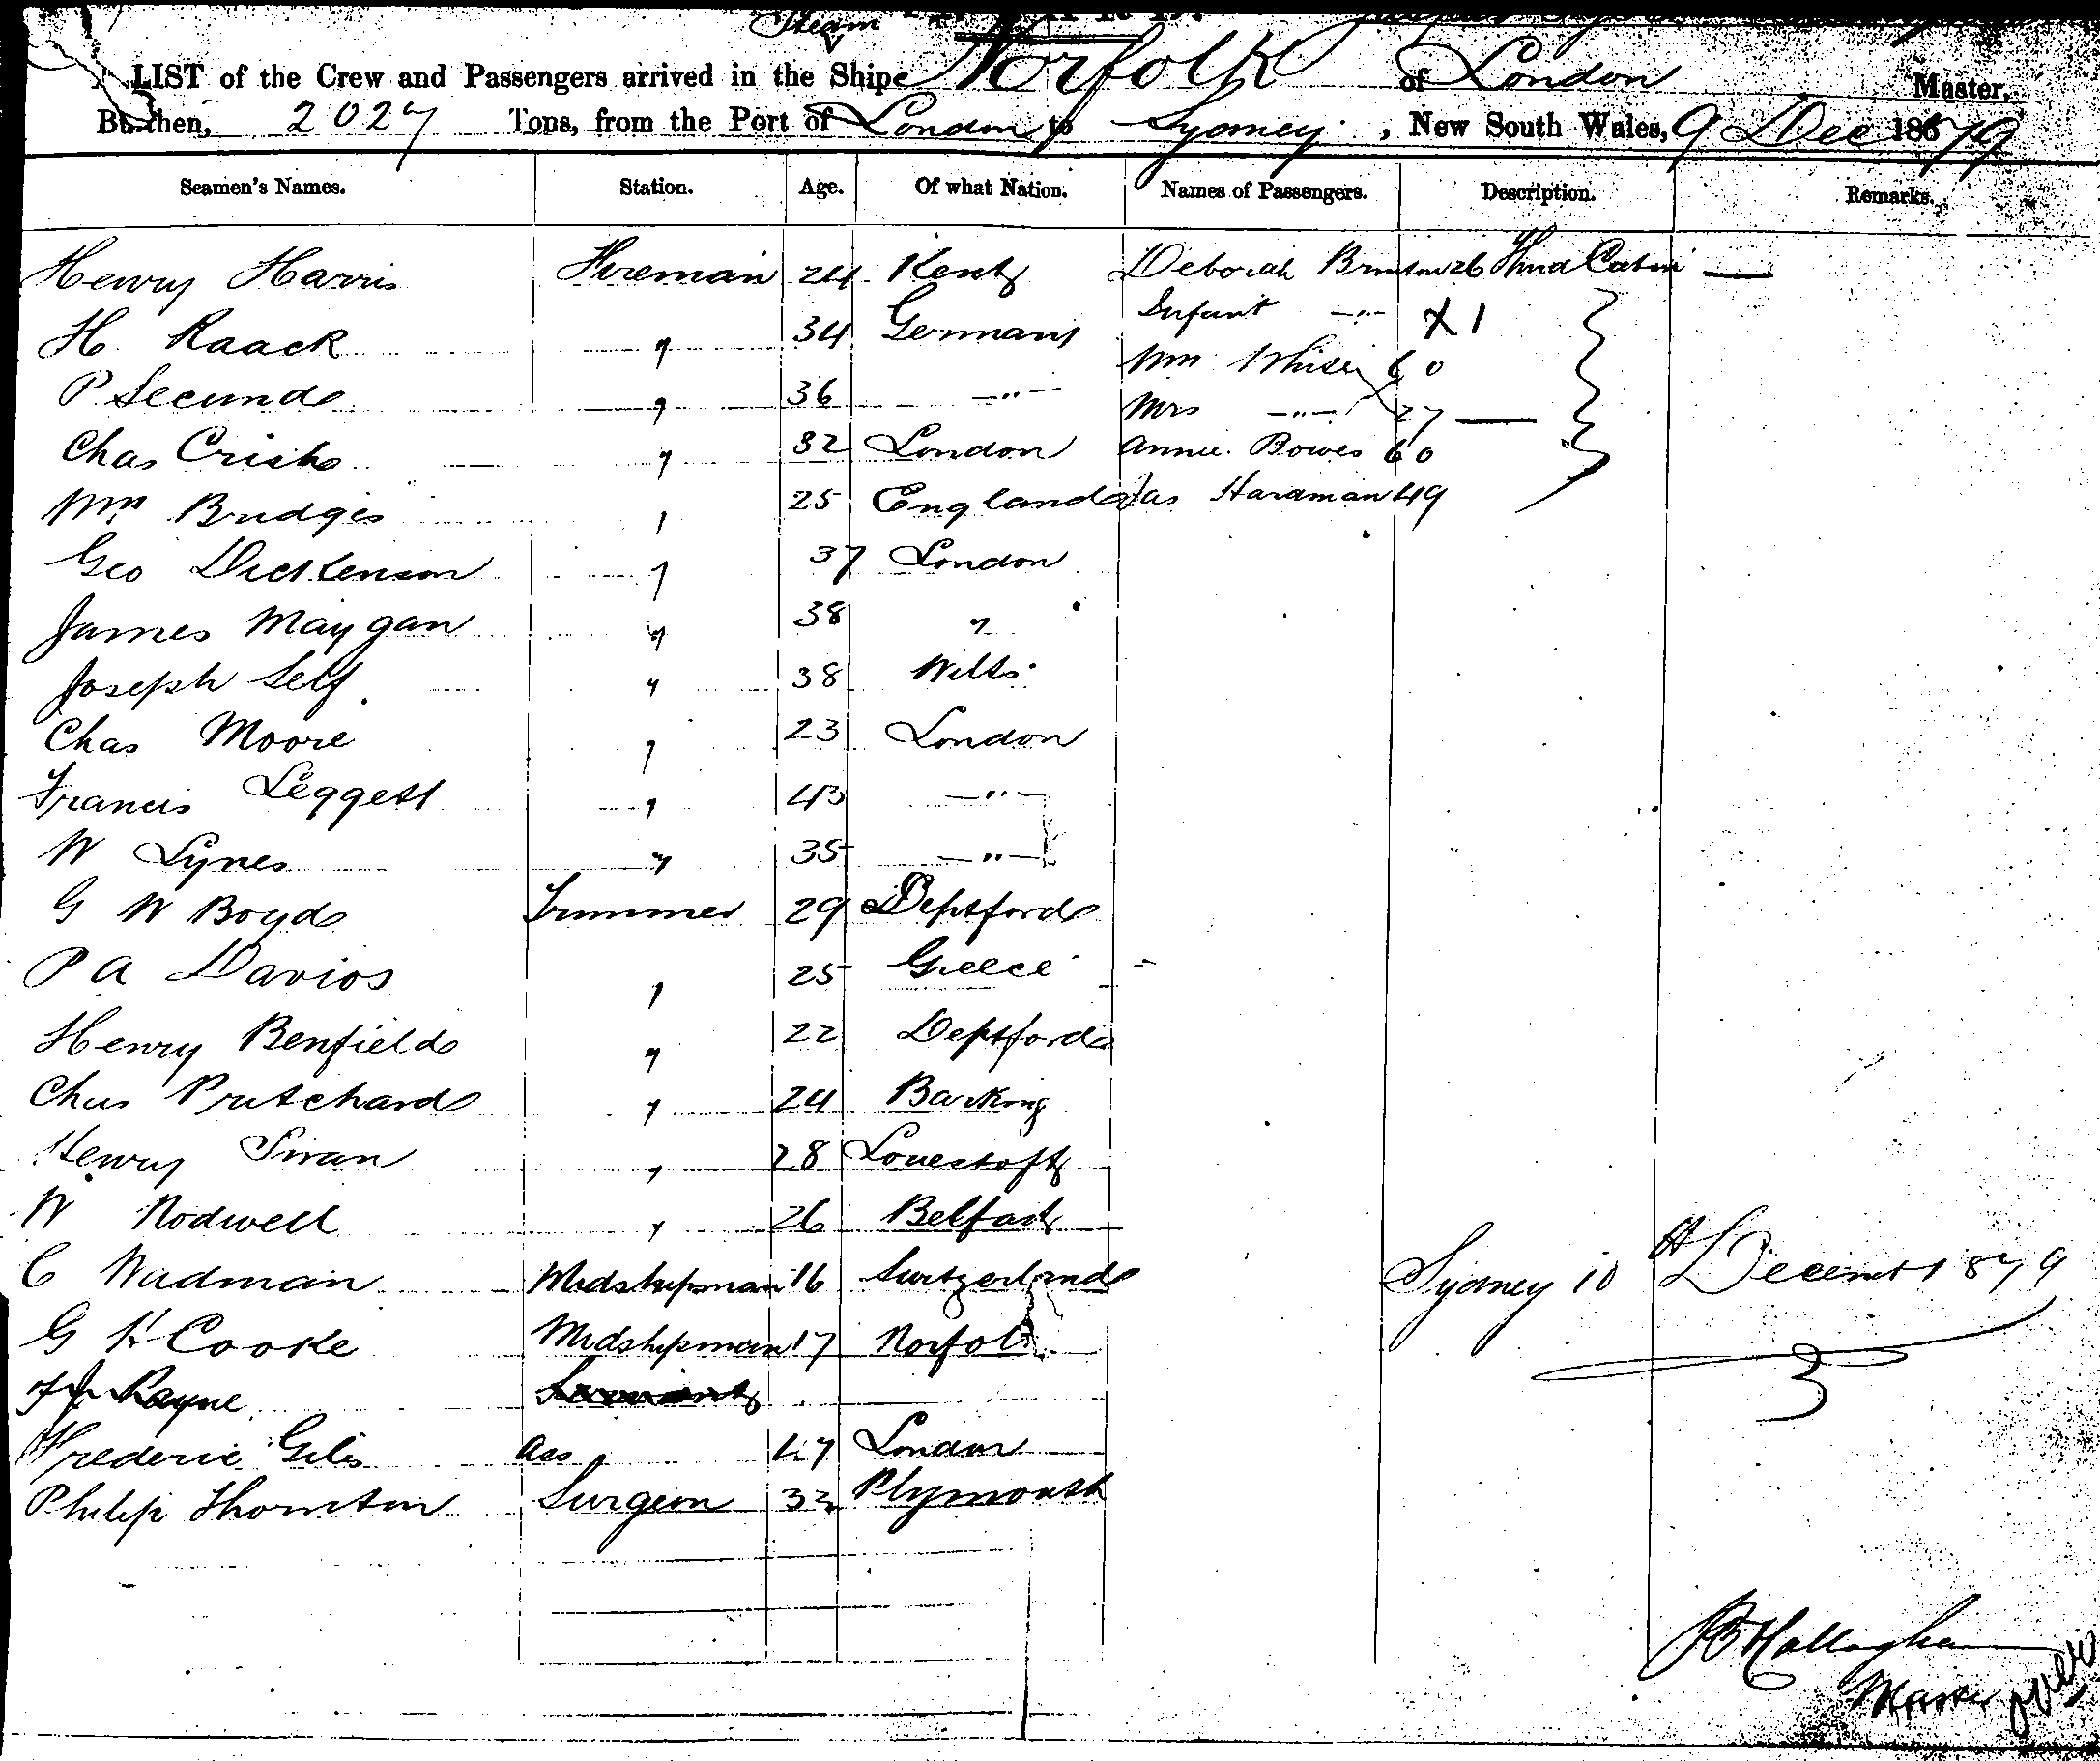 Steam
LIST of the Crew and Passengers arrived in the Ship Norfolk of London Master,
Burthen, 2027 Tons, from the Port of London to Sydney, New South Wales, 9 Dec 1879
Seamen's Names. Station. Age. Of what Nation. Names of Passengers. Description. Remarks.
Henry Harris Fireman 24 Kent Deborah Brunton 26 Third Cabin —
H. Raack " 34 Germany Infant —"— X 1
P Secund " 36 —"— Wm 60
Mrs —"— 27 —
Chas Crisp " 32 London Annie Bowes 60
Wm Bridges " 25 England Jas Hardman 49
Geo Dickenson " 37 London
James Maygan " 38 "
Joseph Self " 38 Wilts
Chas Moore " 23 London
Francis Leggett " 43 —"—
W Lynes " 35 —"—
G W Boyd Trimmer 29 Deptford
P A Davios " 25 Greece
Henry Benfield " 22 Deptford
Chas Pritchard " 24 Barking
Henry Swan " 28 Lowestoft
W Rodwell " 26 Belfast
C Wadman Midshipman 16 Switzerland
Sydney 10th Decemr 1879
G H Cooke Midshipman 17 Norfolk
Payne
Frederic Giles Ass 47 London
Philip Thornton Surgeon 32 Plymouth
Master
over